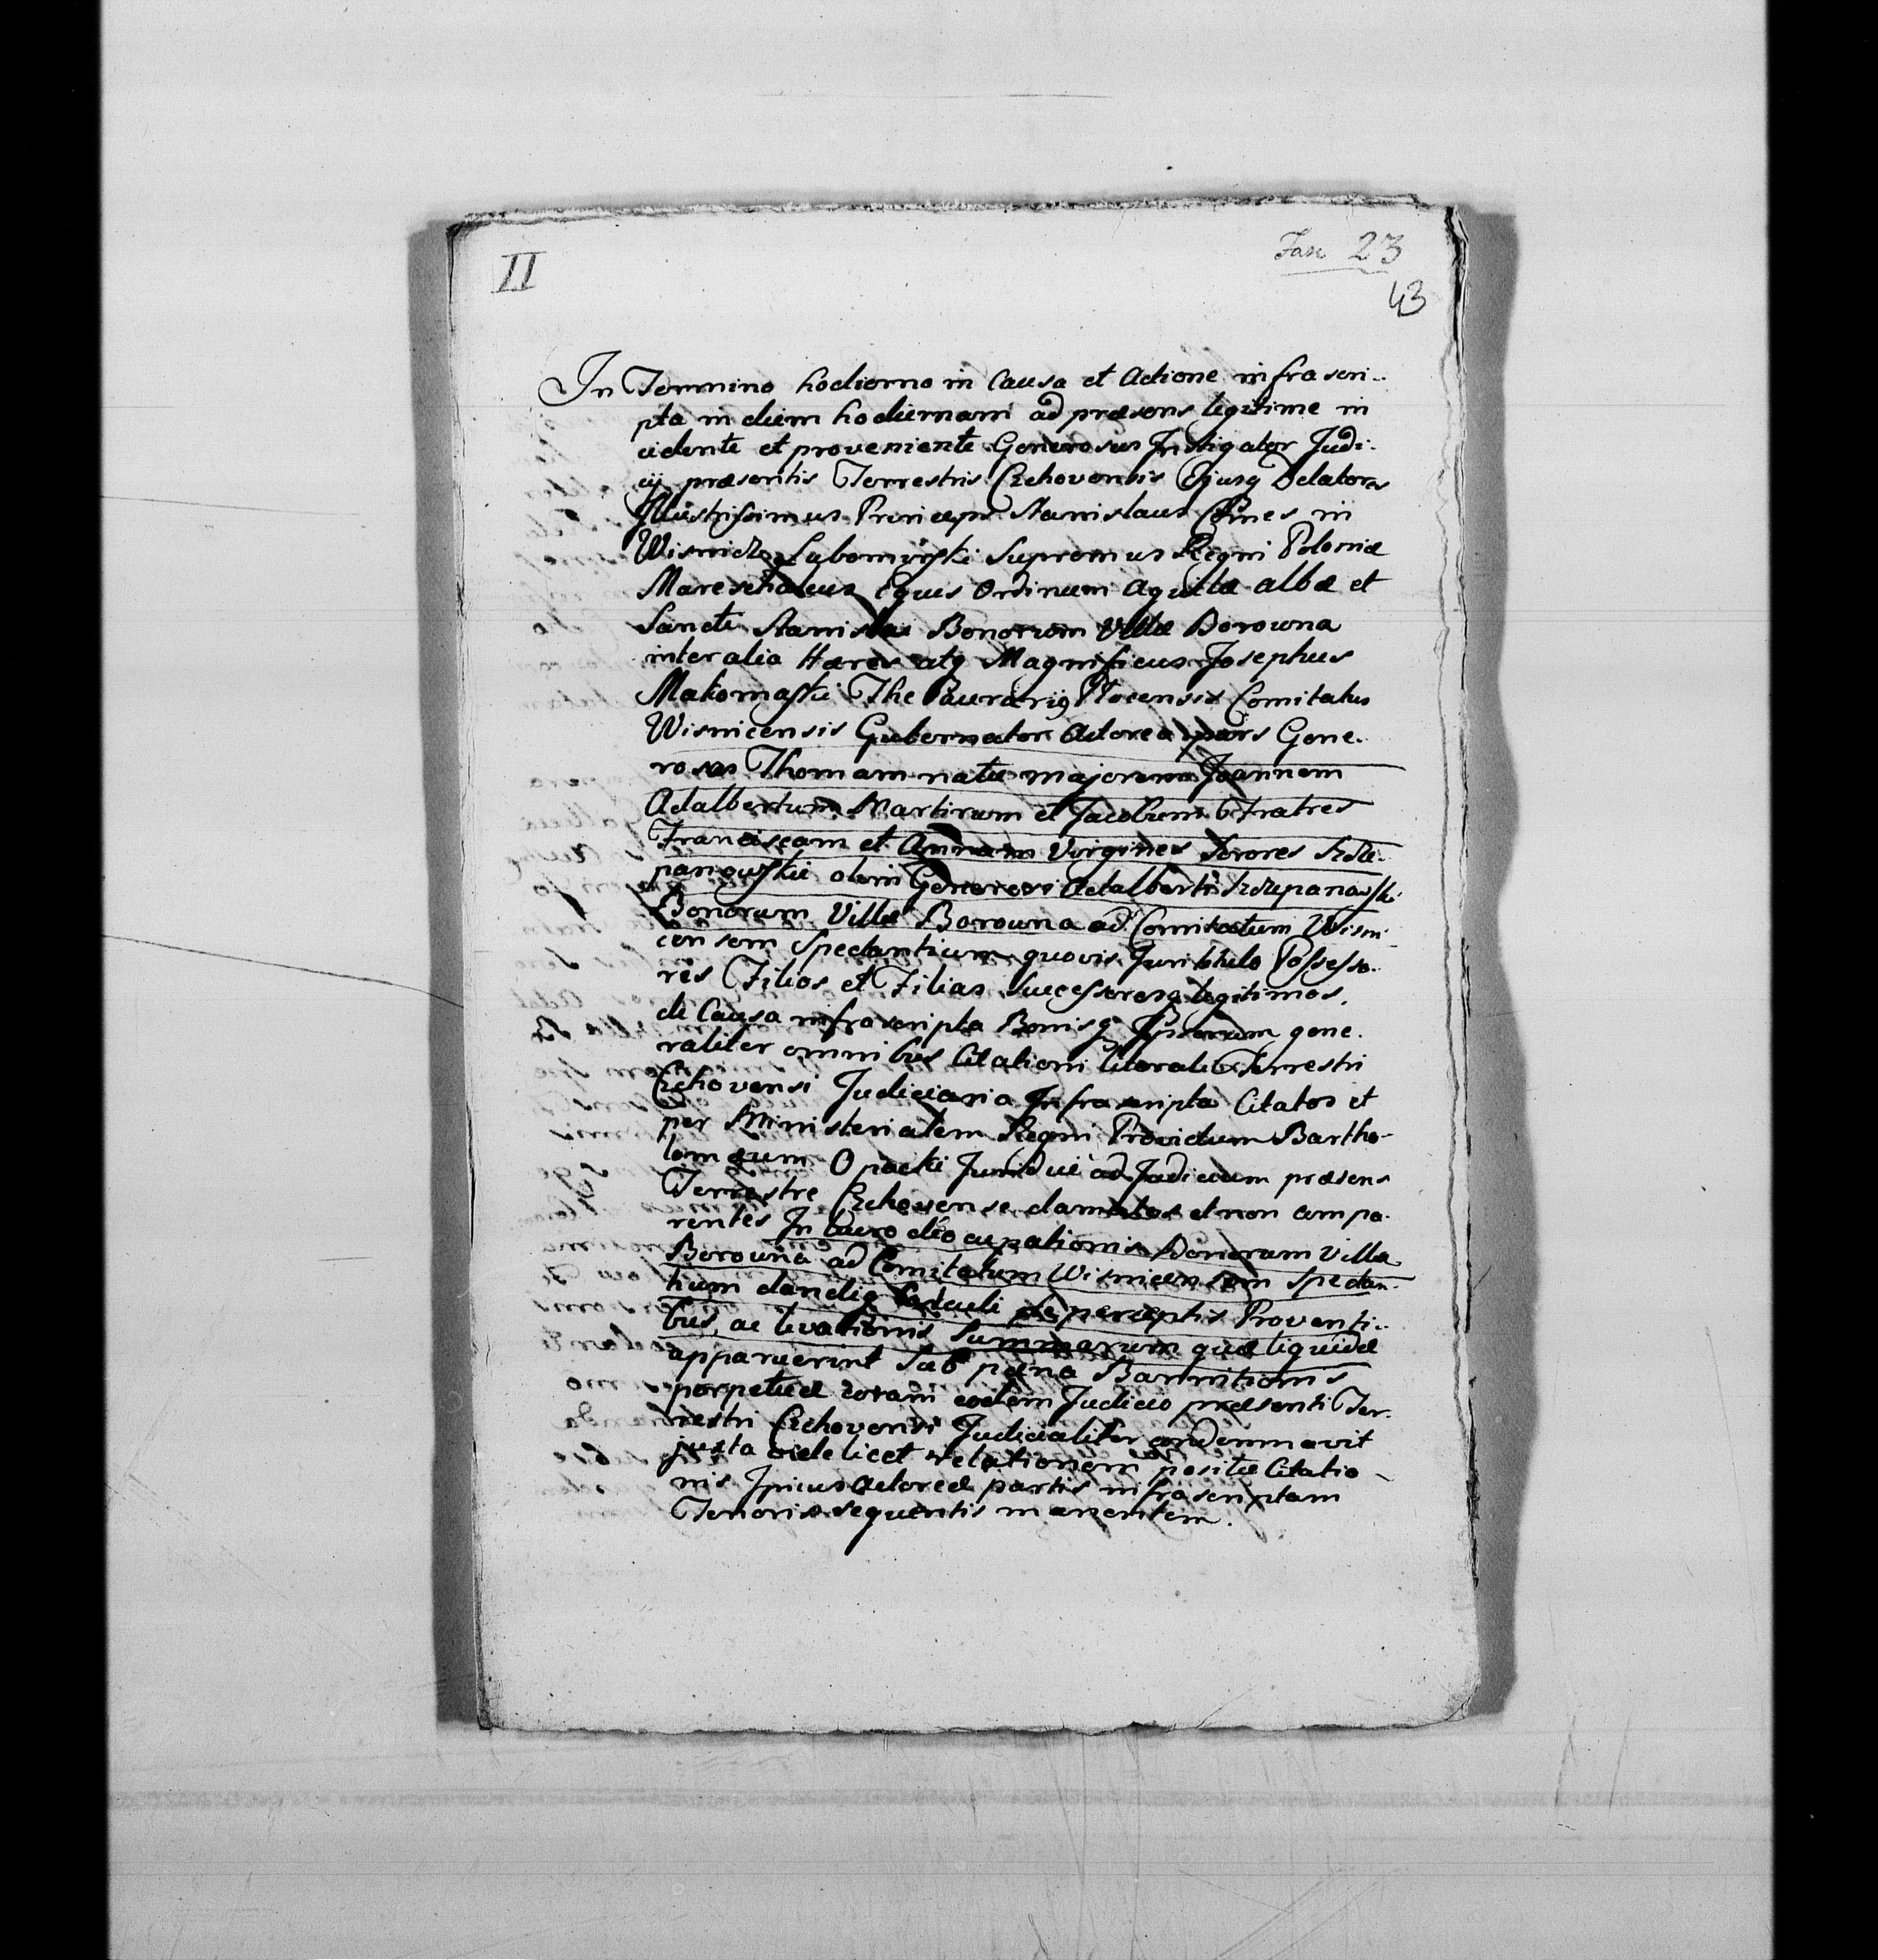 II
Fasc 23
43
In Termino hodierno in Causa et Actione infrascri-
pta in diem hodiernam ad præsens legitime in
cidente et proveniente Generosus Instigator Judi-
cij præsentis Terrestris Czchoviensis Ejusq Delatores
Illustrissimus Princeps Stanislaus Comes in
Wisnicz Lubomirski Supremus Regni Poloniæ
Mareschalcus Eques Ordinum Aquilæ albæ et
Sancti Stanislai Bonorum Villæ Borowna
inter alia Hæres atq Magnificus Josephus
Makomaski The Saurariq Plocensis Comitatus
Wisnicensis Gubernator Actorea pars Gene-
rosos Thomam natu majorem Joannem
Adalbertum Martinum et Jacobum Fratres
Franciscam et Annam Virgines Sorores Szcze-
panowskie olim Generosi Adalberti Szczepanowski
Bonorum Villæ Borowna ad Comitatum Wisni-
censem Spectantium quovis Juris titulo Possesso-
ris Filios et Filias Successoresq legitimos,
de Causa infrascripta Bonisq Ipsorum gene-
raliter omnibus Citationi literali Terrestri
Czchoviensi Judiciaria Infrascripta Citatos et
per Ministerialem Regni Providum Bartho-
lomæum Opacki Juridice ad Judicium præsens
Terrestre Czchoviense clamatos et non compa-
rentes In Lucro deoccupationis Bonorum Villæ
Borowna ad Comitatum Wisnicensem Spectan-
tium dandiq Calculi de perceptis Proventi-
bus, ac levationis Summarum quæ liquidæ
apparuerint Sub pæna Bannitionis
perpetuæ coram eodem Judicio præsenti Ter-
restri Czchoviensi Judicialiter condemnavit
juxta videlicet relationem positæ Citatio-
nis Ipsius Actoreæ partis infrascriptam
Tenoris sequentis manentem.